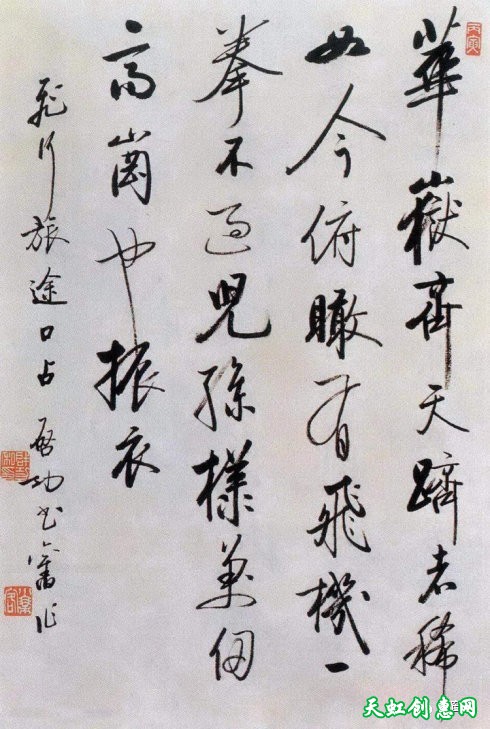 丙寅
華嶽齊天躋者稀
如今俯瞰有飛機一
拳不過兒孫樣萬仞
高崗也振衣
飛行旅途口占 啓功書舊作
天虹创惠网